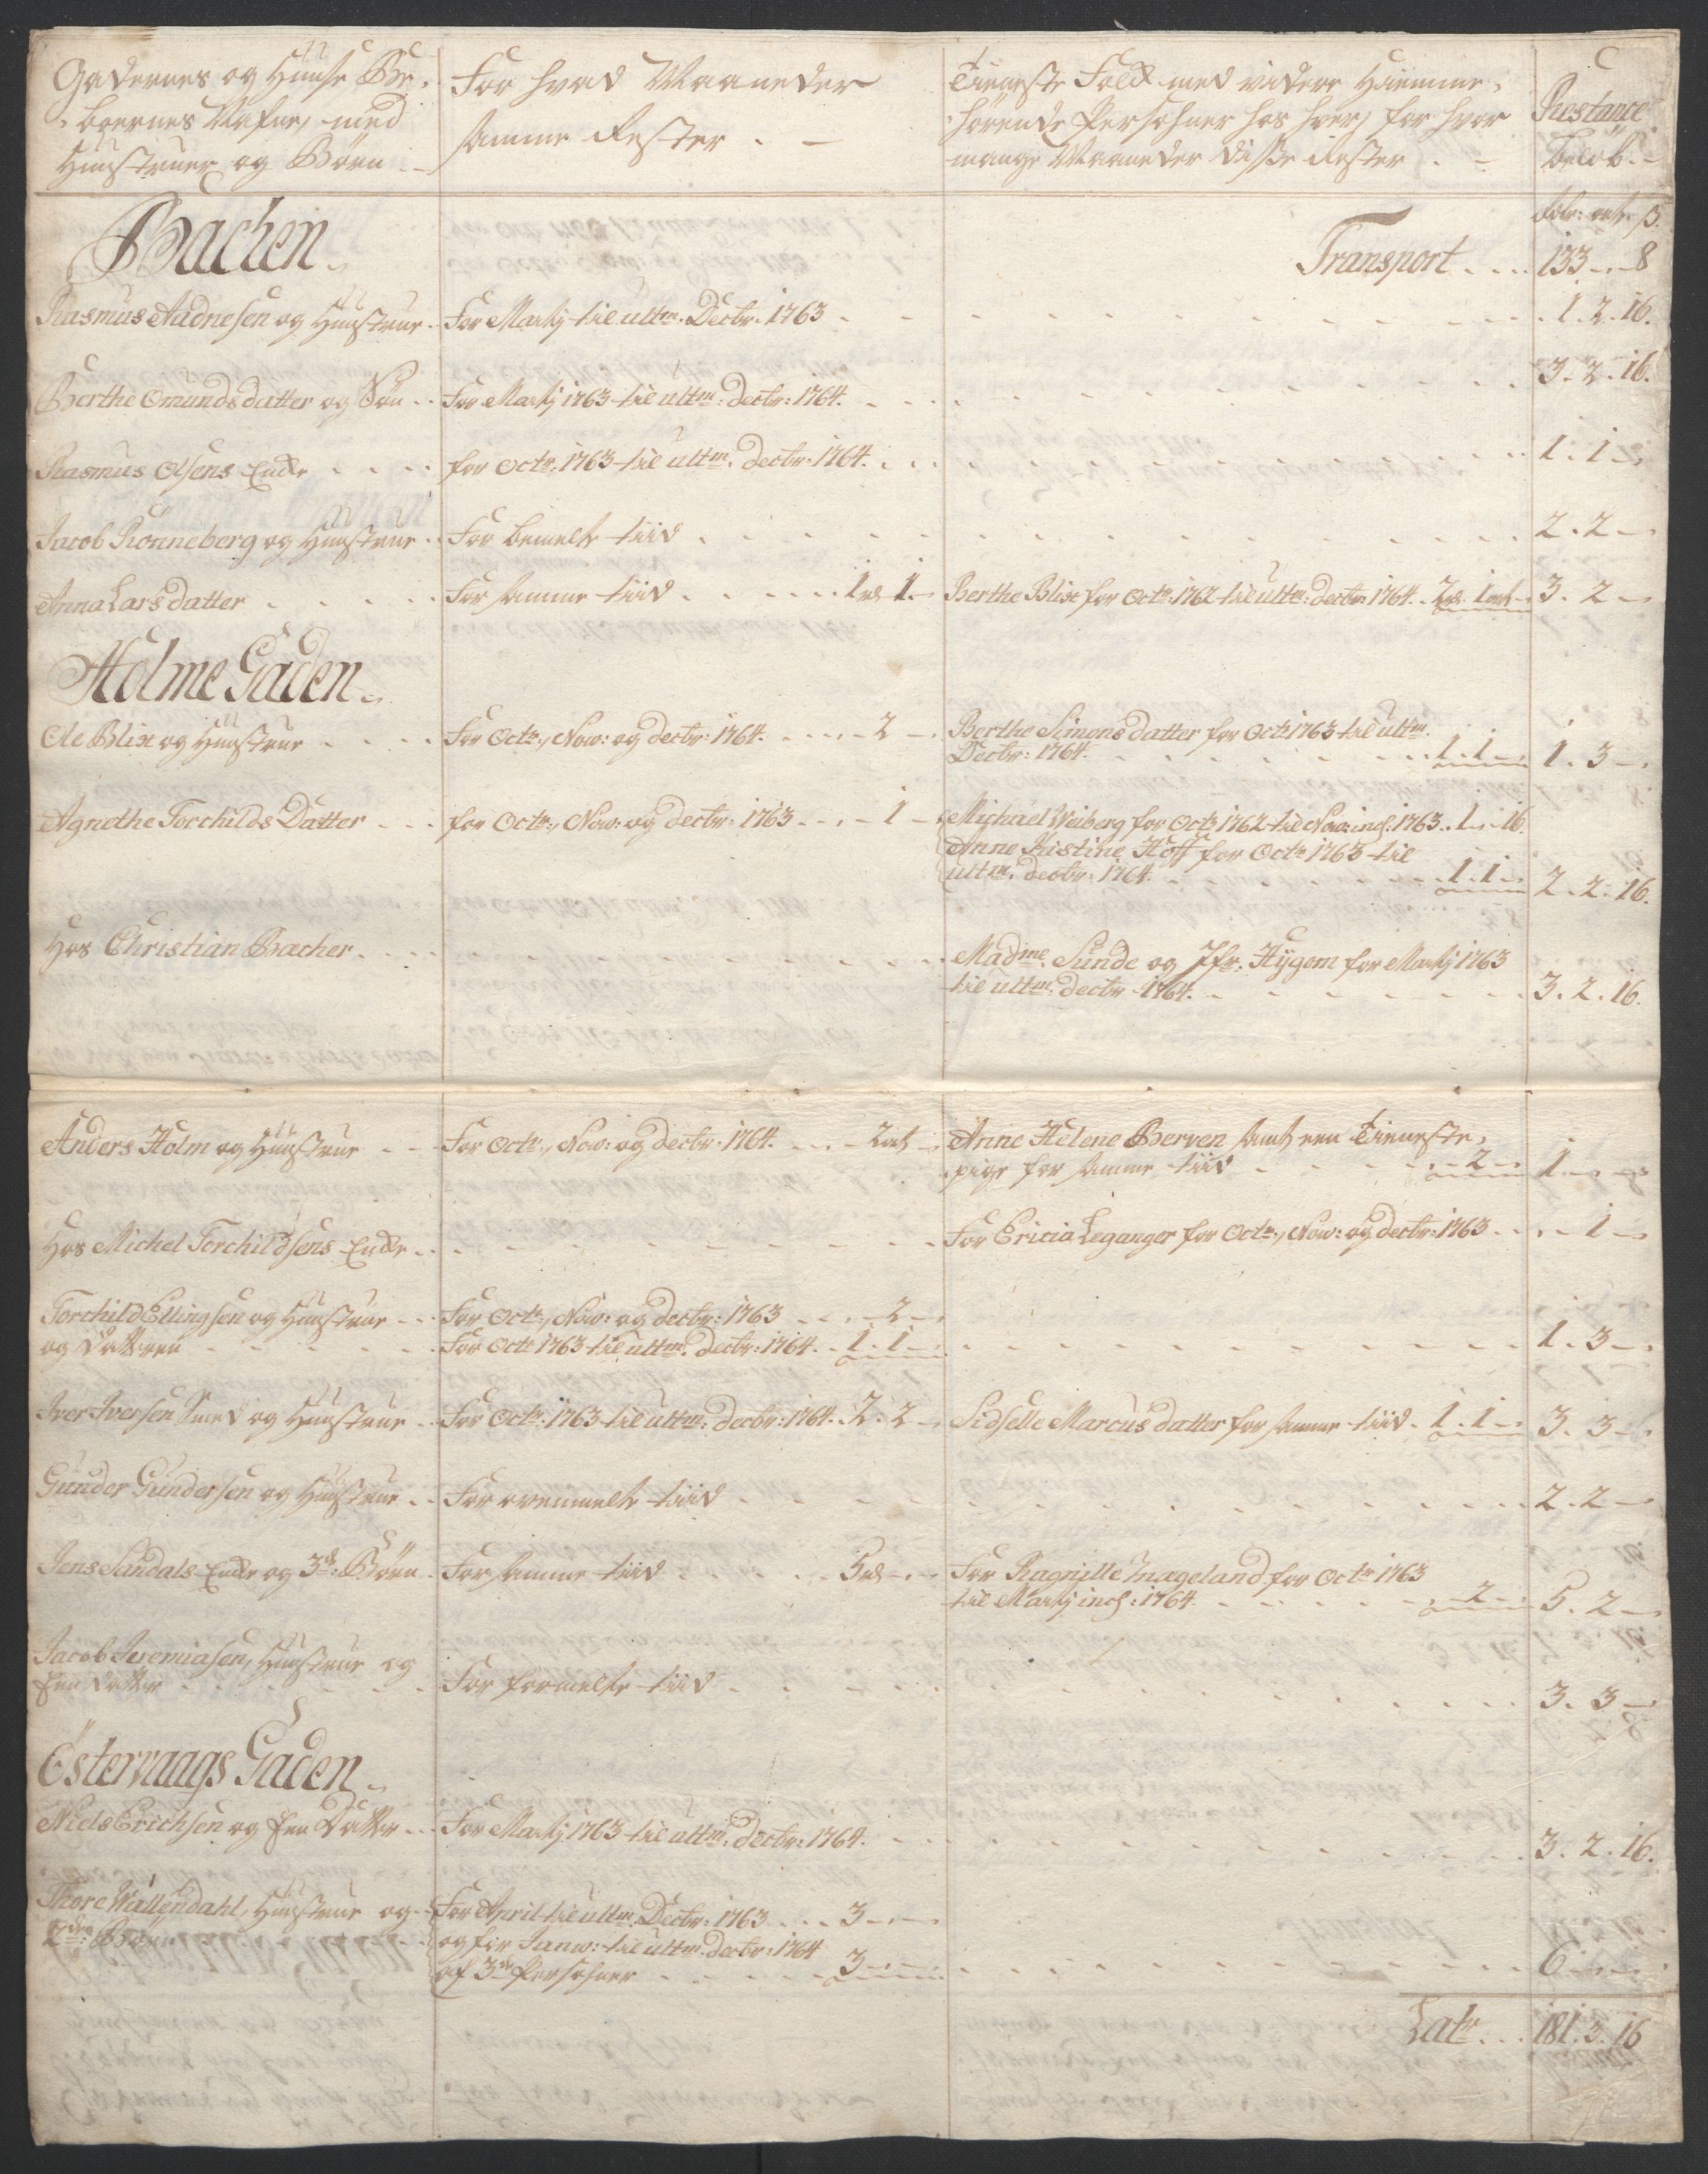 Gadernes og Huuse Be- For hvad Maaneder Tieneste Folk med videre Hiemme- Restance
boernes Nafne, med samme Rester . – hörende Persohner hos hver, for hvor Belöb. –
Hustruer og Börn – mange Maaneder disse Rester . –
Bachen Transport . . . 133 – „ – 8
Rasmus Audnesen og Hustrue . For Martij til ultm. Decbr. 1763 . 1 . 2 . 16.
Berthe Omundsdatter og Sön . . For Martij 1763 til ultm: Decbr: 1764. 3 . 2 . 16.
Rasmus Olsens Enke . . . . for Octr. 1763 til ultm. Decbr. 1764. . . 1 . 1 –
Jacob Rönneberg og Hustrue . For bemelte tiid . 2 . 2 –
Anna Larsdatter . . . . For samme tiid . . . . . 1 rd 1. – Berthe Blix for Octr. 1762 til ultm: Decbr: 1764. . 2 rd. 1 ort – 3 . 2 –
Holme Gaden
Ole Blix og Hustrue . . . . For Octr., Nov: og Decbr: 1764. . . . – 2 – Berthe Simonsdatter for Octr 1763 til ultm.
Decbr: 1764. . . . 1 . 1 – 1 . 3 –
Agnethe Torchilds Datter . . . for Octr., Nov: og Decbr: 1763 . . . – 1 – Michael Weiberg for Octr 1762 til Nov: incl: 1763. . 1 . – 16.
Anne Kistine Hoff for Octr 1763 til
ultm. Decbr: 1764. . . . 1 . 1 – 2 . 2 . 16.
Hos Christian Bacher . . . Madme. Sunde og Jfr. Hygom for Martij 1763
til ultm. Decbr 1764. . . . 3 . 2 . 16.
Anders Holm og Hustrue . – For Octr., Nov: og Decbr: 1764. . . – 2 ort – Anne Helene Berven samt een Tieneste-
pige for samme tiid . . . – 2 – 1 – „ –
Hos Michel Torchildsens Enke . . For Ericia Leganger for Octr., Nov: og Decbr: 1763 . . . 1 –
Torchild Ellingsen og Hustrue . . . For Octr., Nov: og Decbr: 1763 . . . – 2 –
og Datteren . . . . For Octr 1763 til ultm. Decbr: 1764. . 1 . 1 – 1 . 3 –
Iver Iversen Smed og Hustrue . . For Octr. 1763 til ultm: Decbr: 1764. 2 . 2 – Sidselle Marcusdatter for samme tiid . 1 . 1 – 3 . 3 –
Gunder Gundersen og Hustrue . . For ovenmelte tiid . 2 . 2 –
Jens Sandals Enke og 3de: Börn . For samme tiid . . . . 5 rd – „ – For Ragnille Nageland for Octr 1763
til Martij incl: 1764 . . . – 2 – 5 . 2 –
Jacob Jeremiasen, Hustrue og
Een Datter . . . For formelte tiid . 3 . 3 –
Östervaags Gaden
Niels Erichsen og Een Datter . . For Martij 1763 til ultm: Decbr: 1764. 3 . 2 . 16.
Thore Wallendahl, Hustrue og . For April til ultm. Decbr: 1763 . . . 3 – „ –
2de: Börn . . . og for Janw: til ultm. Decbr: 1764
af 3de Persohner . . . . 3 – „ – 6 – „ –
Latr . . . 181 . 3 . 16